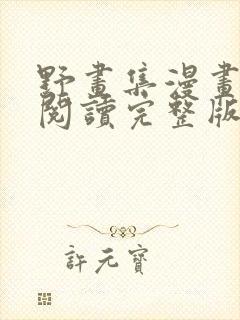 野畫集漫畫
閱讀完整版
許元寶